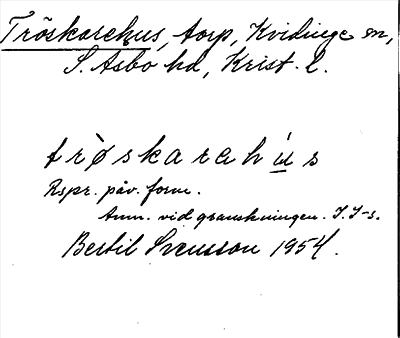 Tröskarehus, torp, Kvidinge sn,
S. Åsbo hd, Krist. l.
trøskarahús
Rspr. påv. form.
Anm. vid granskningen. I. I-s.
Bertil Svensson 1954.